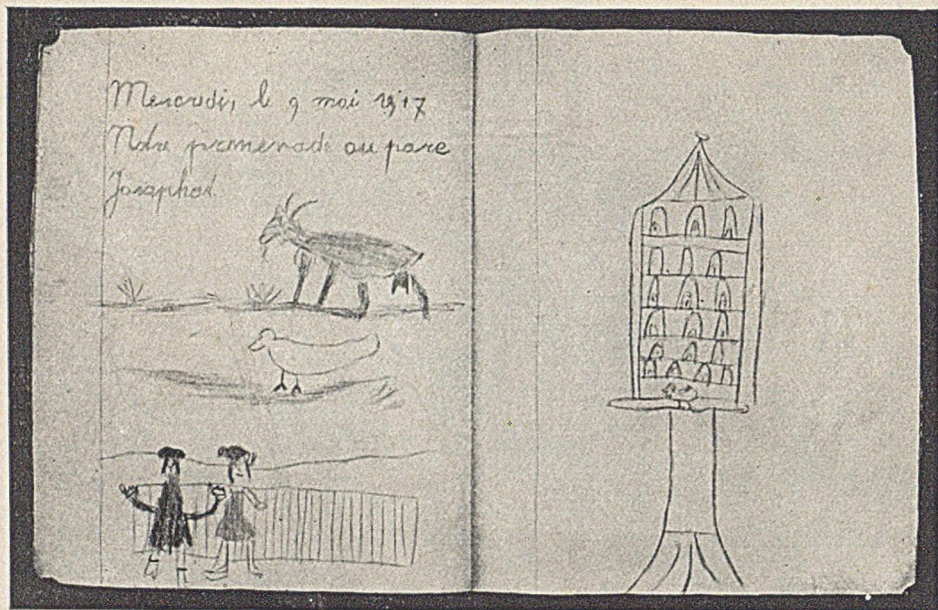 Mercredi, le 9 mai 1917
Notre promenade au parc
Josaphat